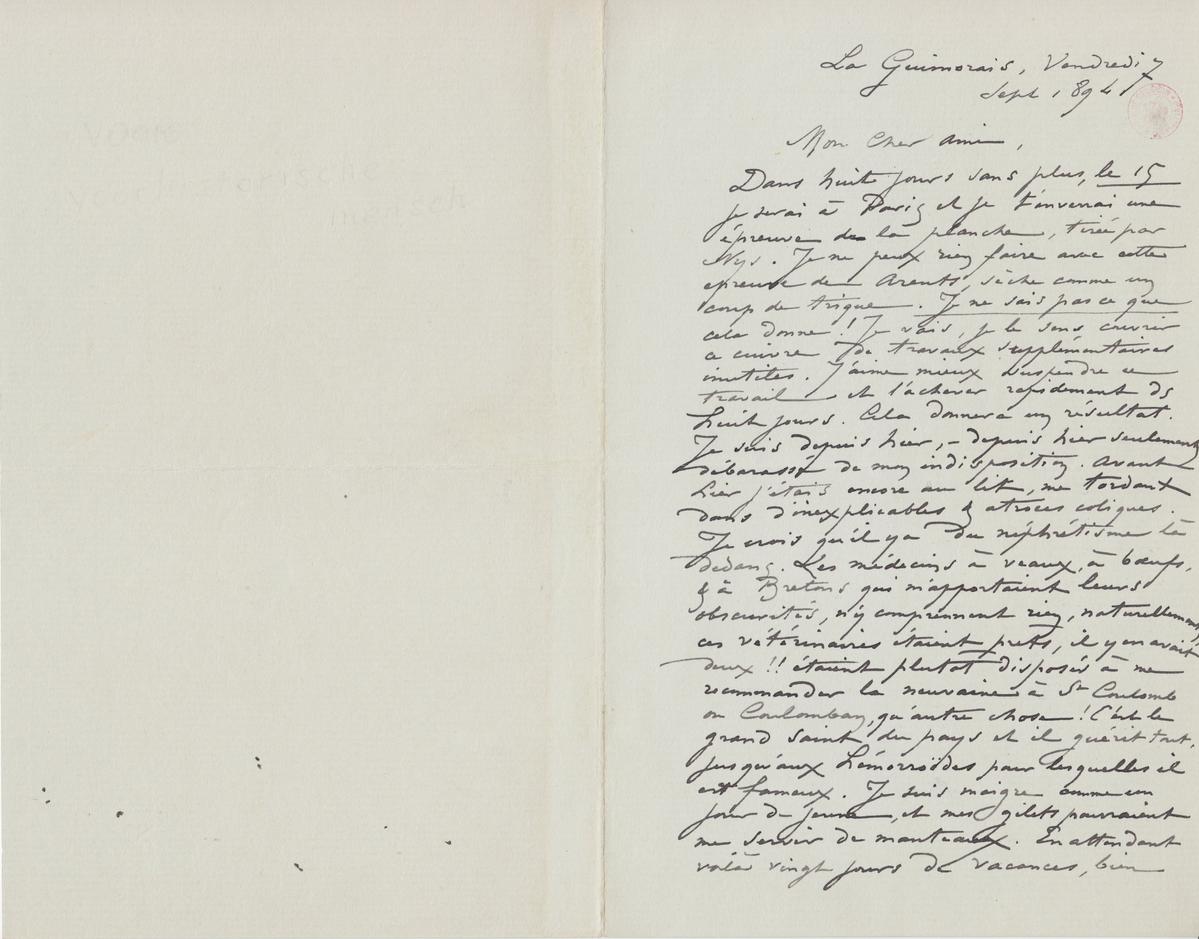 voor
voorhistorische
mensch
La Guimorais, Vendredi 7
Sept 1894
Mon Cher ami,
Dans huit jours sans plus, le 15
je serai à Paris et je t'enverrai une
épreuve de la planche, tirée par
Nys. Je ne peux rien faire avec cette
epreuve de Arents, sèche comme un
coup de trique. Je ne sais pas ce que
cela donne! Je vais, je le sens couvrir
ce cuivre de travaux supplémentaires
inutiles. J'aime mieux suspendre ce
travail et l'achever rapidement ds
huit jours. Cela donnera un résultat.
Je suis depuis hier, – depuis hier seulement
débarassé de mon indisposition. Avant
hier j'étais encore au lit, me tordant
dans d'inexplicables & atroces coliques.
Je crois qu'il y a du néphrétisme là
dedans. Les médecins à veaux, à bœufs,
& à Bretons qui m'apportaient leurs
obscurités, n'y comprennent rien, naturellement,
ces vétérinaires étaient prets, il y en avait
deux!! étaient plutôt disposés à me
recommander la neuvaine à St Coulomb
ou Coulomban, qu'autre chose! C'est le
grand Saint du pays et il guérit tout,
jusqu'aux hémorroïdes pour lesquelles il
est fameux. Je suis maigre comme un
jour de jeune, et mes gilets pourraient
me servir de manteaux. En attendant
voilà vingt jours de vacances, bien